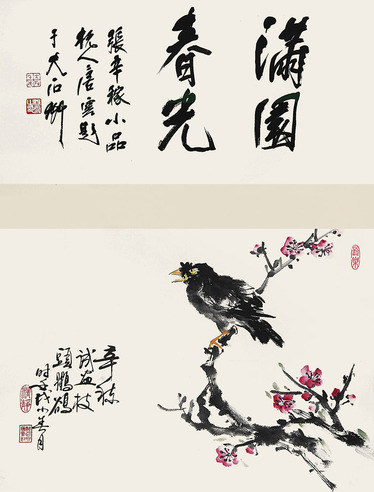 滿園
春光
張辛稼小品
杭人唐雲題
于大石齋
辛稼
試畫枝
頭鸜鵒
時壬戌小春月